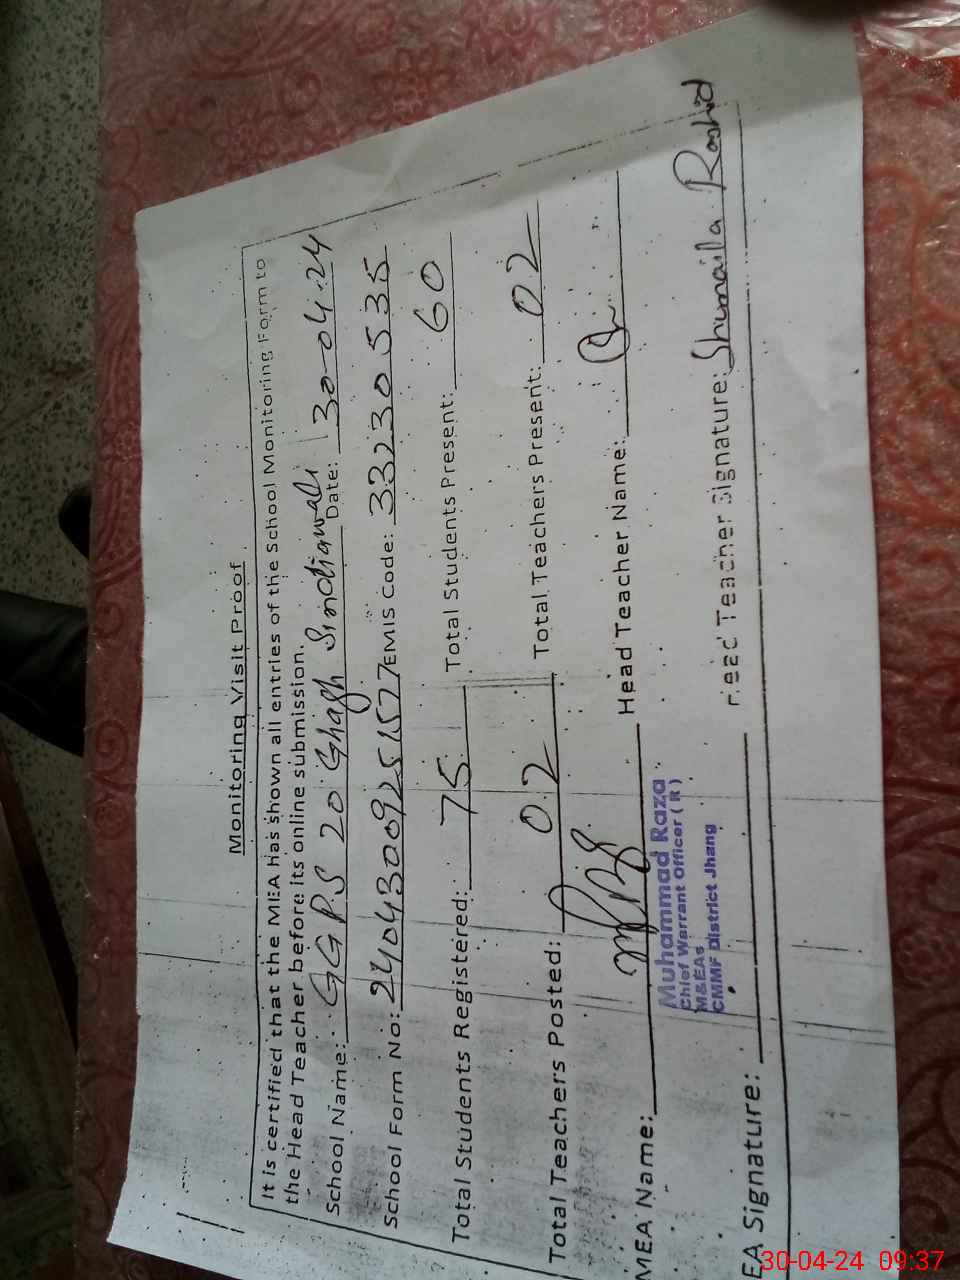 Monitoring Visit Proof
It is certified that the MEA has shown all entries of the School Monitoring Form to
the Head Teacher before its online submission.
School Name: GGPS 20 Ghagh Sindianwali Date: 30-04-24
School Form No: 24043009251577 EMIS code: 33230535
Total Students Registered: 75 Total Students Present: 60
Total Teachers Posted: 02 Total Teachers Present: 02
MEA Name: Head Teacher Name:
Muhammad Raza
Chief Warrant Officer (R)
M&EAs
CMMF District Jhang
EA Signature: Head Teacher Signature: Shumaila Rashid
30-04-24 09:37